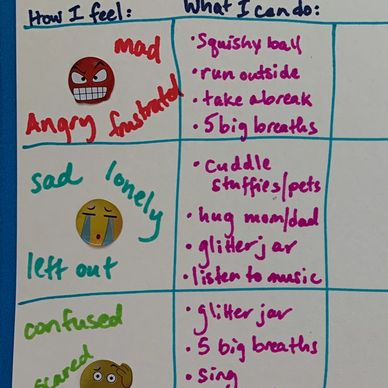 How I feel:
What I can do:
mad
Angry frustrated
• Squishy ball
• run outside
• take a break
• 5 big breaths
sad lonely
left out
• Cuddle
stuffies/pets
• hug mom/dad
• glitter jar
• listen to music
confused
scared
• glitter jar
• 5 big breaths
• sing